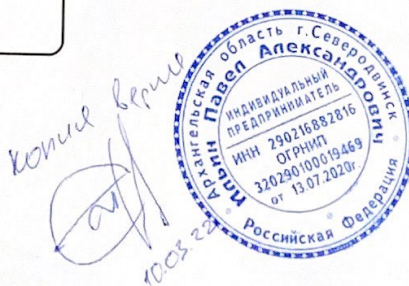 копия верна
10.03.22
Архангельская область г.Северодвинск
Российская Федерация
Ильин Павел Александрович
ИНДИВИДУАЛЬНЫЙ
ПРЕДПРИНИМАТЕЛЬ
ИНН 290216882816
ОГРНИП
320290100019469
от 13.07.2020г.